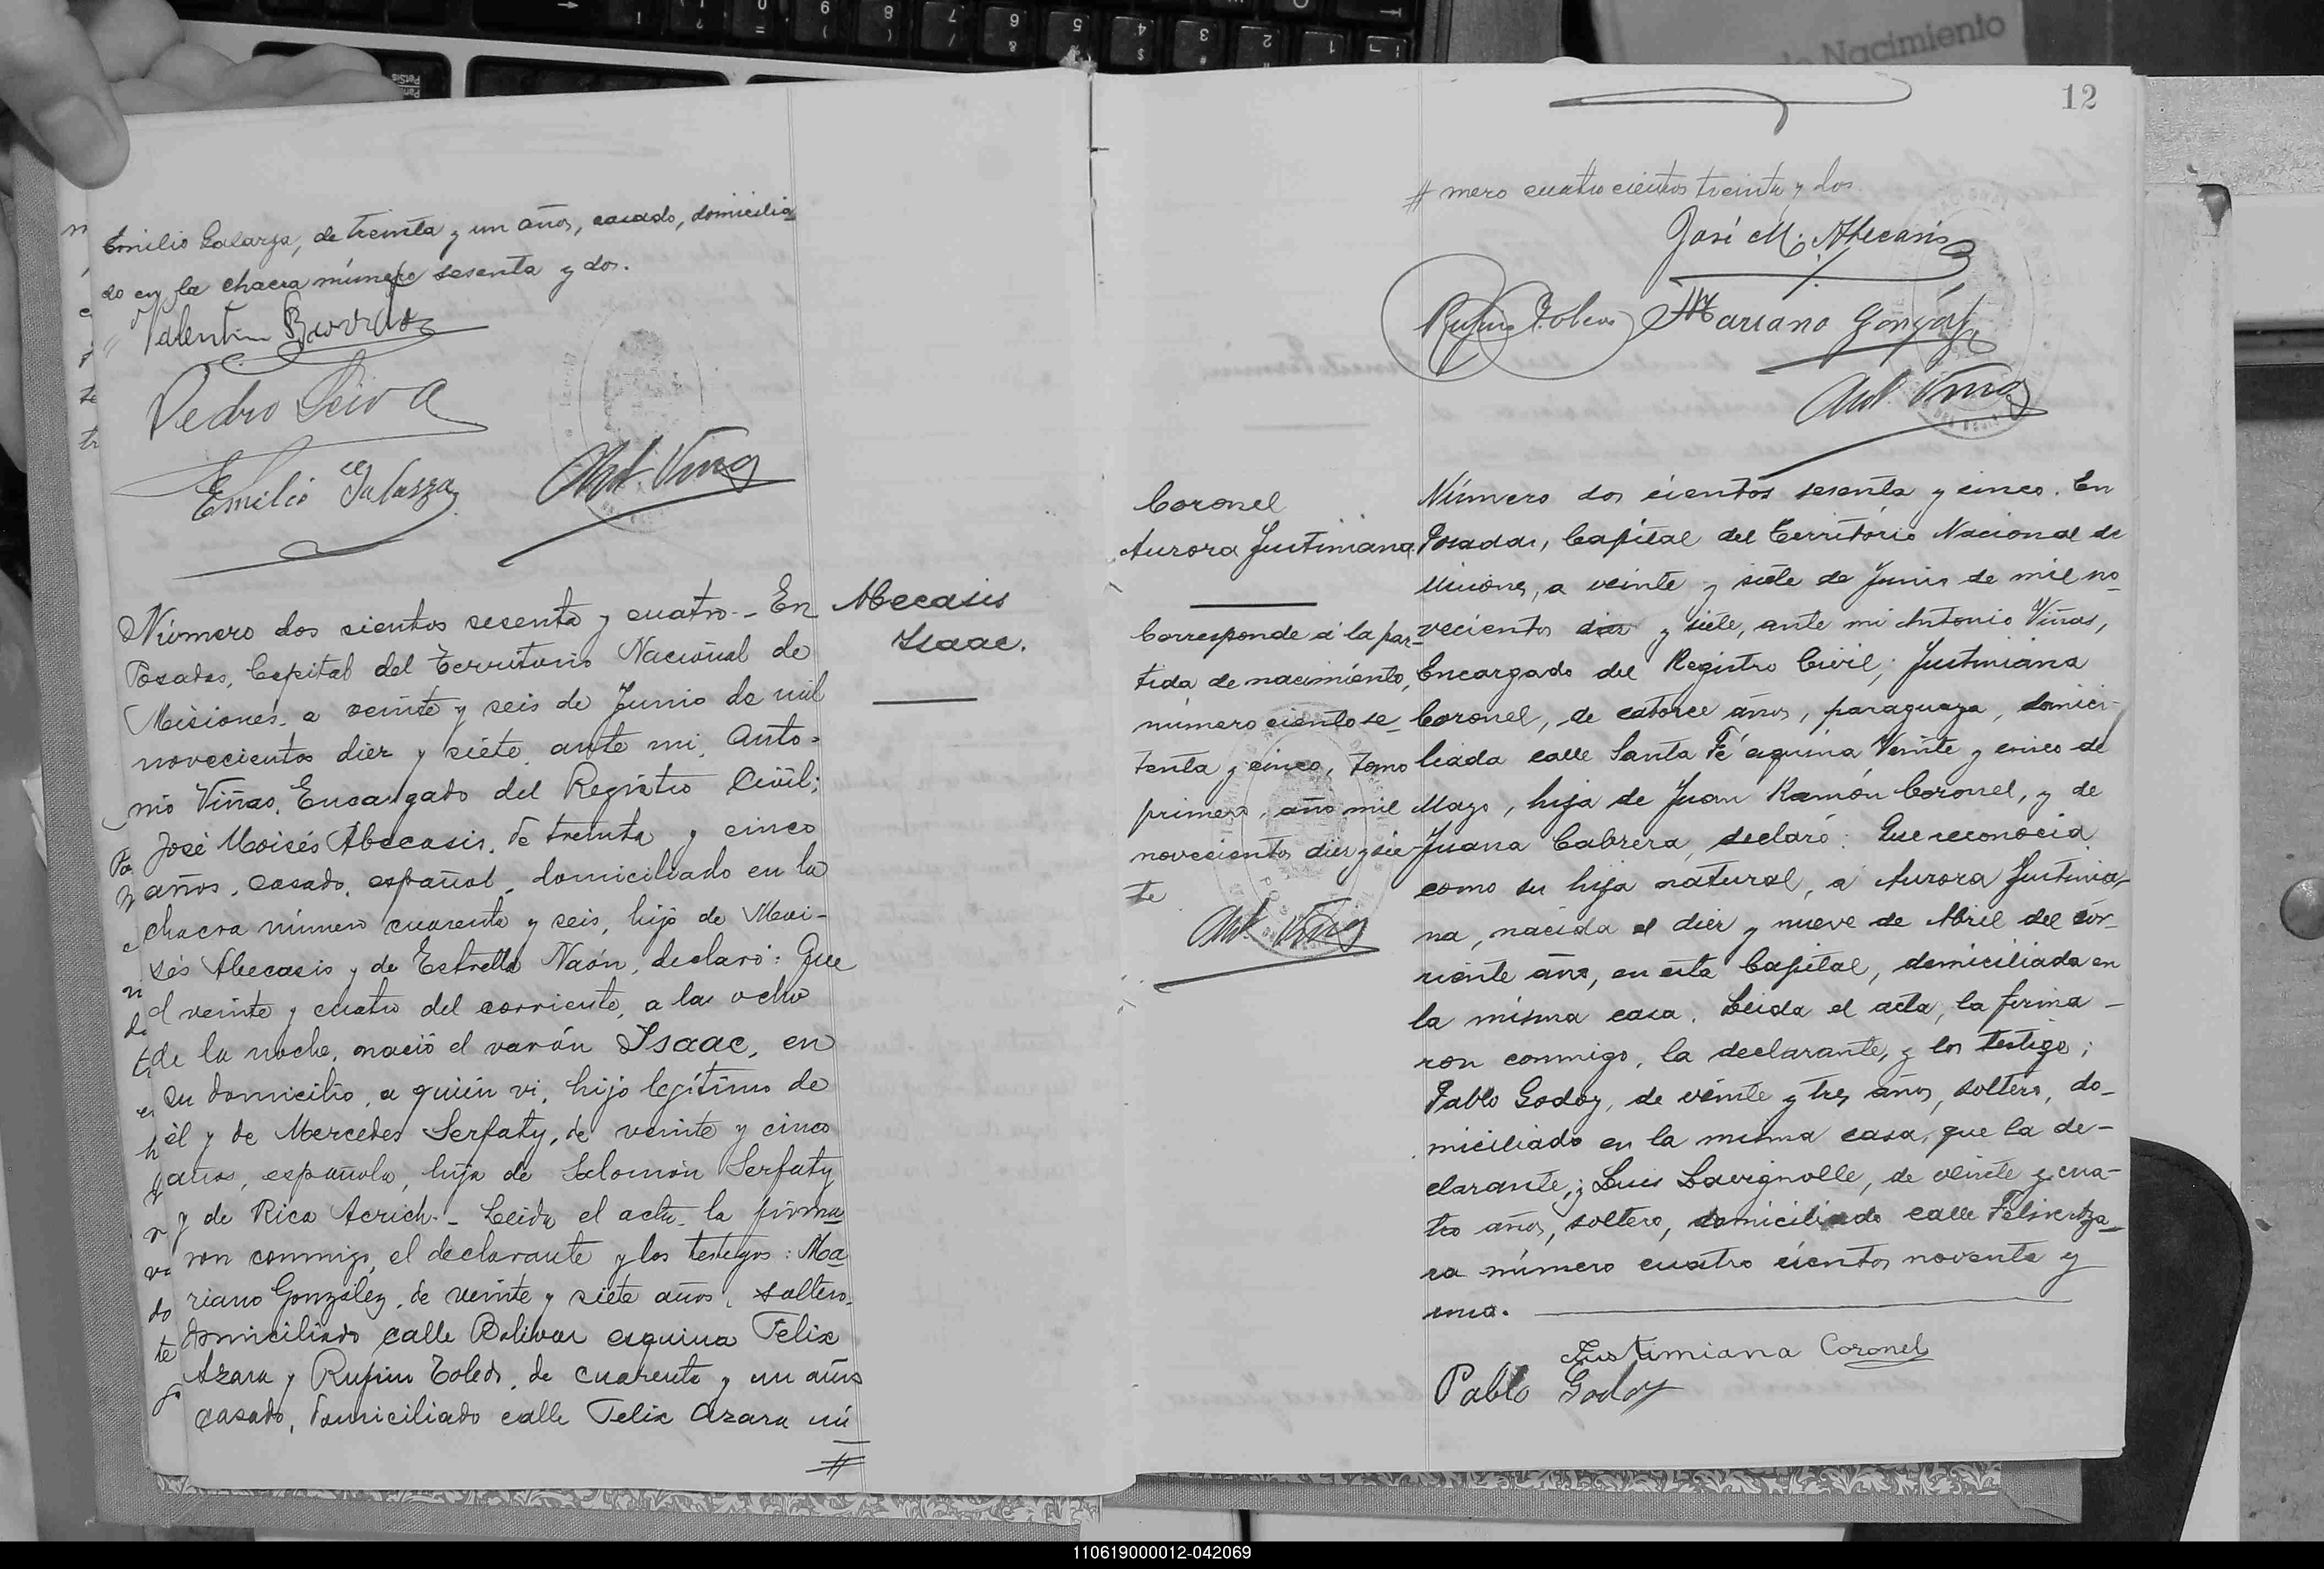 Emilio Galarza, de treinta y un años, casado, domicilia
do en la chacra número sesenta y dos.
Valentin
Pedro Leiva
Emilio Galarza
Ant. Viñas
Número dos cientos sesenta y cuatro.- En
Posadas, Capital del Territorio Nacional de
Misiones, a veinte y seis de Junio de mil
novecientos diez y siete, ante mi, Anto-
nio Viñas, Encargado del Registro Civil;
José Moisés Abecasis, de treinta y cinco
años, casado, español, domiciliado en la
chacra número cuarenta y seis, hijo de Moi-
sés Abecasis y de Estrella Naón, declaró: Que
el veinte y cuatro del corriente, a las ocho
de la noche, nació el varón Isaac, en
su domicilio, a quién vi, hijo legítimo de
él y de Mercedes Serfaty, de veinte y cinco
años, española, hija de Salomón Serfaty
y de Rica Acrich.- Leida el acta, la firma
ron conmigo, el declarante y los testigos: Ma
riano González, de veinte y siete años, soltero,
domiciliado calle Bolivar esquina Felix
Azara y Rufino Toledo, de cuarenta y un años
casado, domiciliado calle Felix Azara nú
#
Abecasis
Isaac.
12
# mero cuatrocientos treinta y dos
José M. Abecasis
Rufino Toledo
Mariano González
Ant. Viñas
Coronel
Aurora Justiniana
Corresponde á la par-
tida de nacimiento,
número ciento se-
tenta y cinco, tomo
primero, año mil
novecientos diez y sie-
te
Ant. Viñas
Número dos cientos sesenta y cinco. En
Posadas, Capital del Territorio Nacional de
Misiones, a veinte y siete de Junio de mil no-
vecientos diez y siete, ante mi Antonio Viñas,
Encargado del Registro Civil; Justiniana
Coronel, de catorce años, paraguaya, domici-
liada calle Santa Fé esquina Veinte y cinco de
Mayo, hija de Juan Ramón Coronel, y de
Juana Cabrera, declaró: Que reconocia
como su hija natural, a Aurora Justinia-
na, nacida el diez y nueve de Abril del cor-
riente año, en esta Capital, domiciliada en
la misma casa. Leida el acta, la firma-
ron conmigo, la declarante, y los testigos;
Pablo Godoy, de veinte y tres años, soltero, do-
miciliado en la misma casa, que la de-
clarante, y Luis Lavignolle, de veinte y cua-
tro años, soltero, domiciliado calle
ra número cuatro cientos noventa y
uno.
Justimiana Coronel
Pablo Godoy
de Nacimiento
110619000012-042069